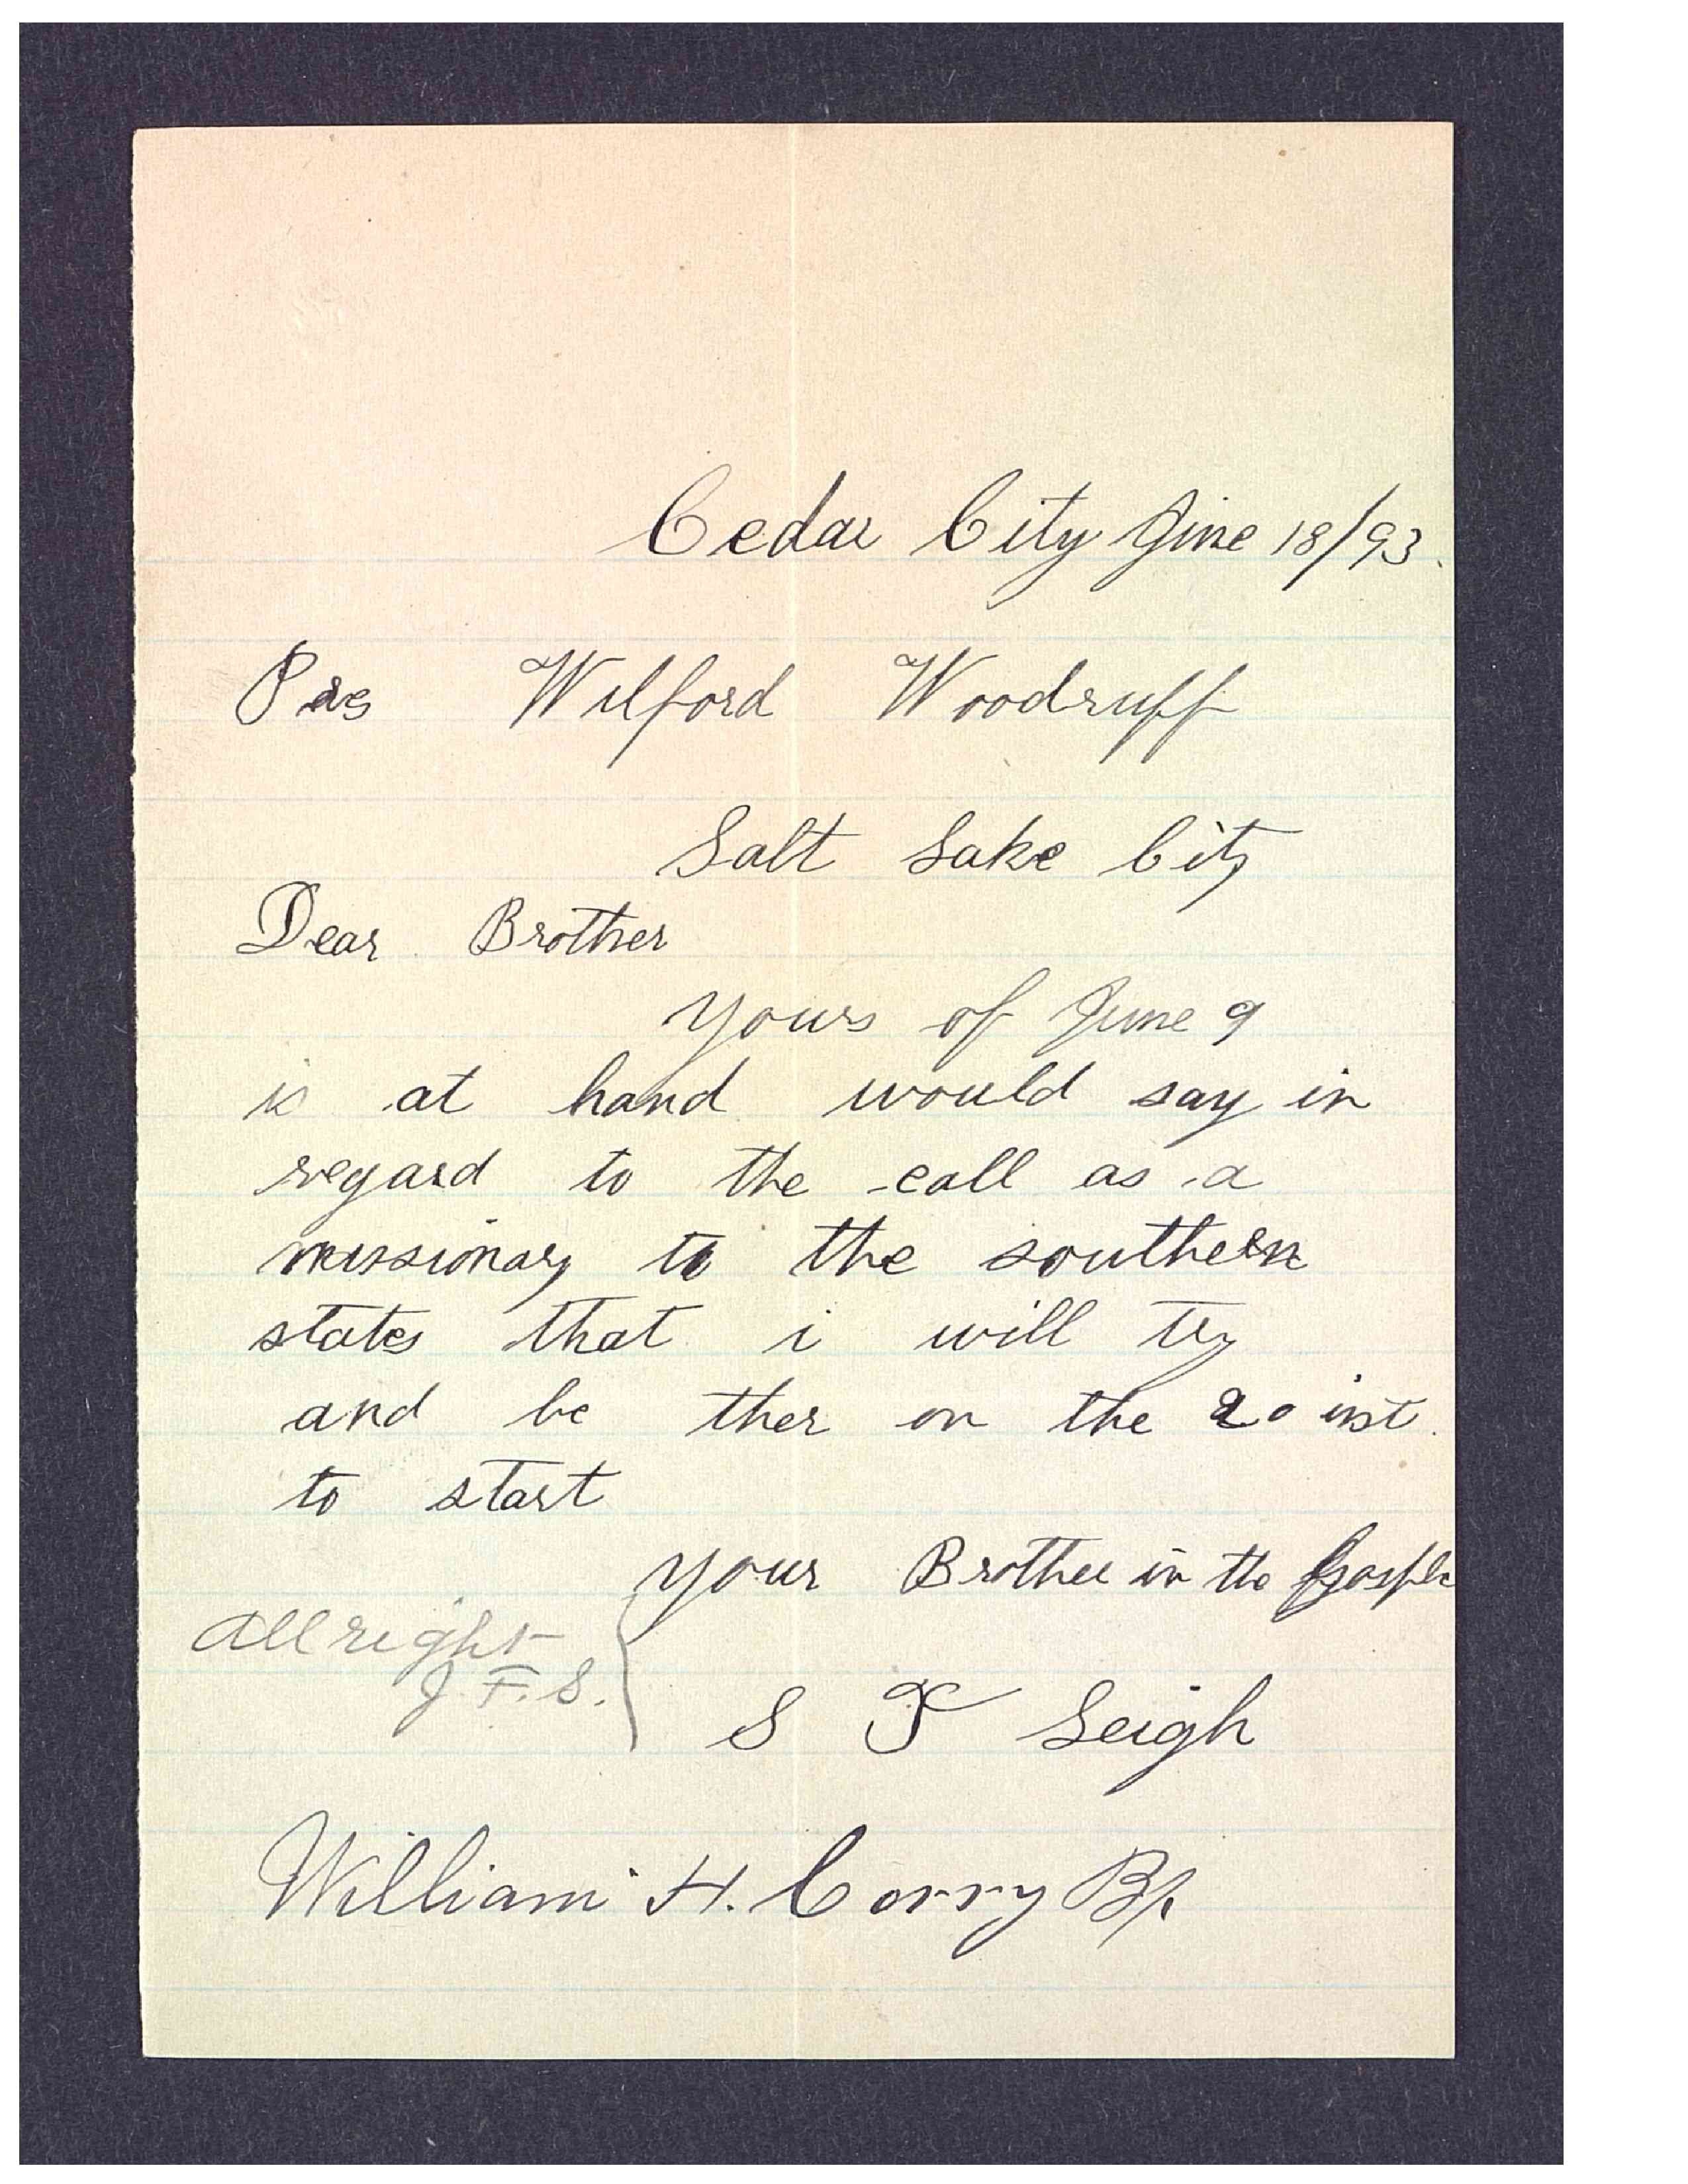 Cedar City June 18/93.
Pres Wilford Woodruff
Salt Lake City
Dear Brother
Yours of June 9
is at hand would say in
regard to the call as a
missionary to the southern
states that i will try
and be ther on the 20 inst.
to start
Your Brother in the Gosple
All right
J. F. S.
S T Leigh
William H. Corry Bp